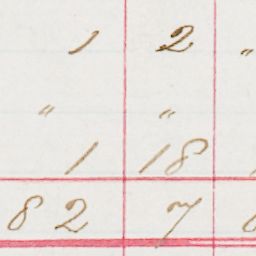 1 2 "
" "
1 18
82 7